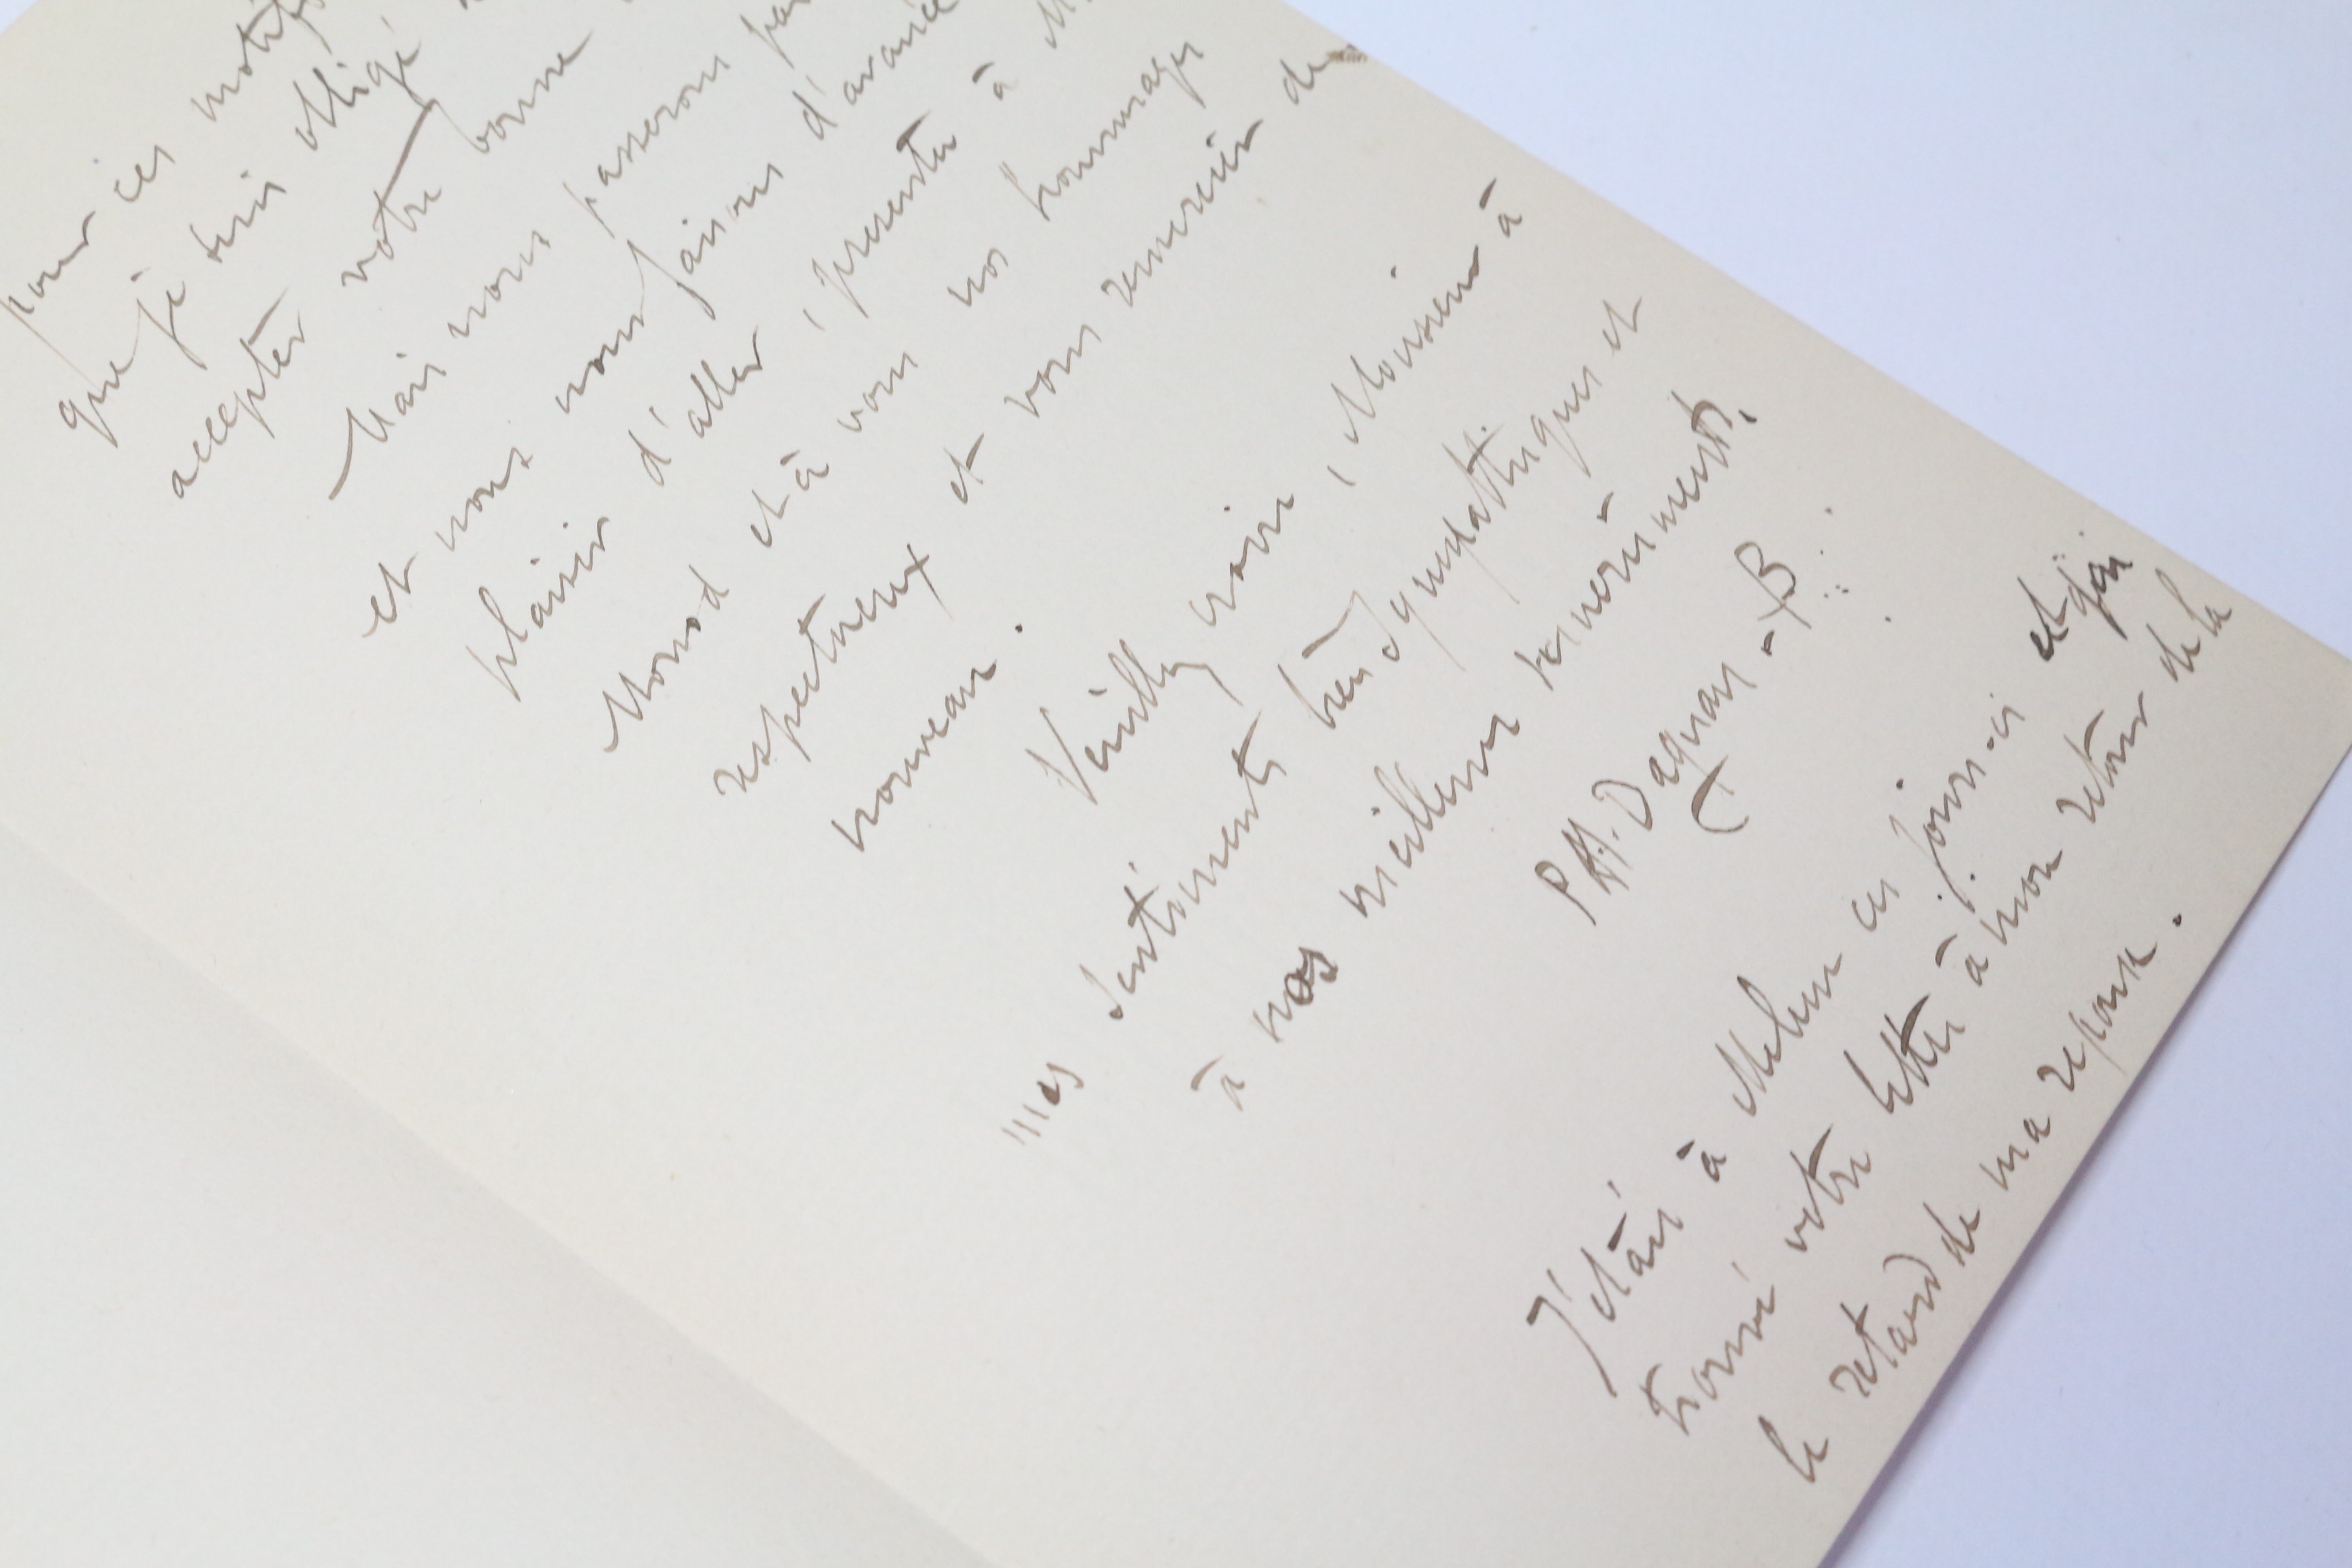 pour ces motifs
que je suis obligé
accepter votre bonne
Mais nous passerons par
et nous nous faisons d'avance
plaisir d'aller présenter à M
Monod et à vous nos hommages
respectueux et vous remercier de
nouveau.
Veuillez croire, Monsieur à
mes sentiments bien sympathiques et
à nos meilleurs sentiments.
P.A.J. Dagnan-B
J'étais à Melun ces jours-ci et j'ai
trouvé votre lettre à mon retour de la
le retard de ma reponse.